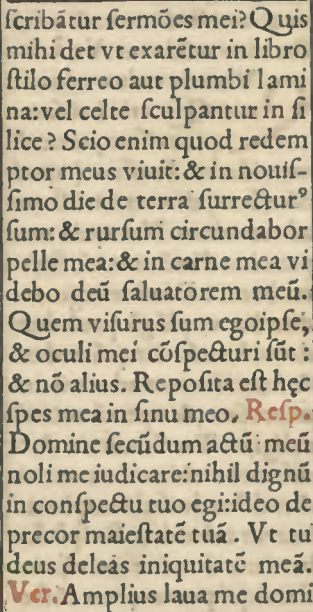 ſcribātur ſermōes mei? Quis
mihi det vt exarētur in libro
ſtilo ferreo aut plumbi lami
na: vel celte ſculpantur in ſi
lice? Scio enim quod redem
ptor meus viuit: & in nouiſ-
ſimo die de terra ſurrecturꝰ
ſum: & rurſum circundabor
pelle mea: & in carne mea vi
debo deū ſaluatorem meū.
Quem viſurus ſum egoipſe,
& oculi mei cōſpecturi ſūt:
& nō alius. Repoſita eſt hęc
ſpes mea in ſinu meo. Reſp.
Domine ſecūdum actū meū
noli me iudicare: nihil dignū
in conſpectu tuo egi: ideo de
precor maieſtatē tuā. Vt tu
deus deleas iniquitatē meā.
Ver. Amplius laua me domi